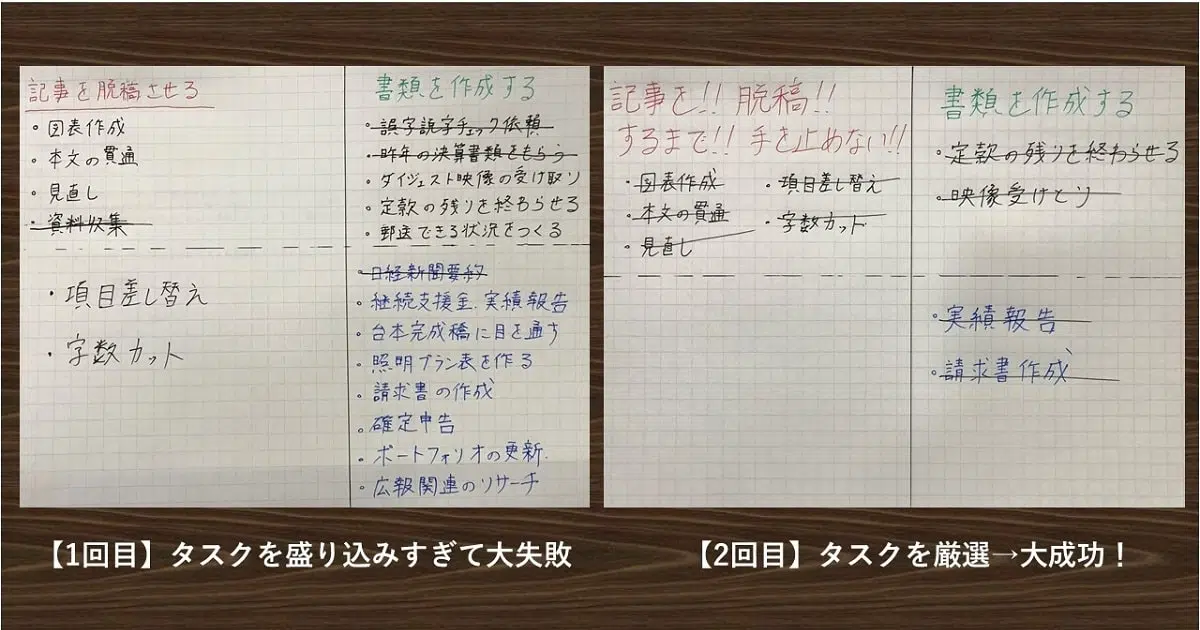 記事を脱稿させる
・図表作成
・本文の貫通
・見直し
・資料収集
・項目差し替え
・字数カット
書類を作成する
・誤字説字チェック依頼
・昨年の決算書類をもらう
・ダイジェスト映像の受け取り
・定款の残りを終わらせる
・郵送できる状況をつくる
・日経新聞要約
・継続支援金.実績報告
・台本完成橋に目を通す
・照明プラン表を作る
・請求書の作成
・確定申告
・ポートフォリオの更新.
・広報関連のリサーチ
記事を!! 脱稿!!
するまで!! 手を止めない!!
・図表作成
・本文の貫通
・見直し
・項目差し替え
・字数カット
書類を作成する
・定款の残りを終わらせる
・映像受けとり
・実績報告
・請求書作成
【1回目】タスクを盛り込みすぎて大失敗
【2回目】タスクを厳選→大成功！